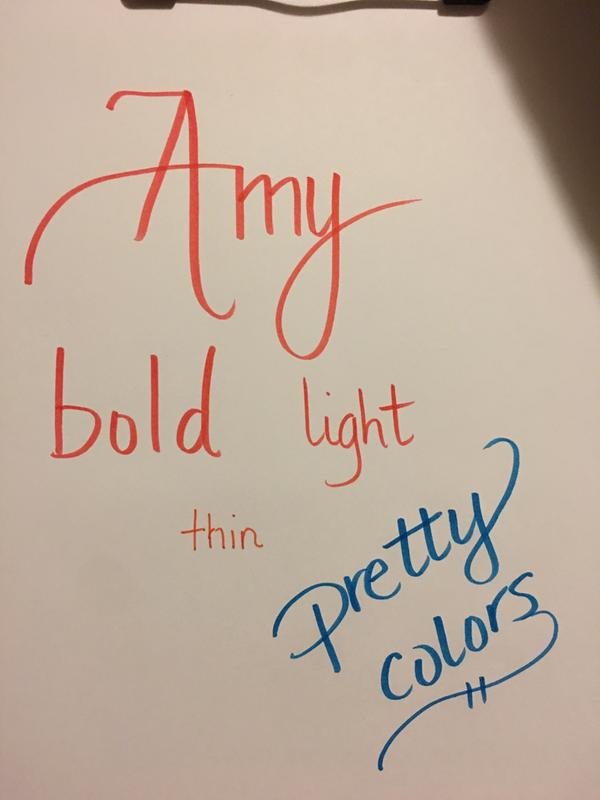 Amy
bold light
thin
Pretty
colors